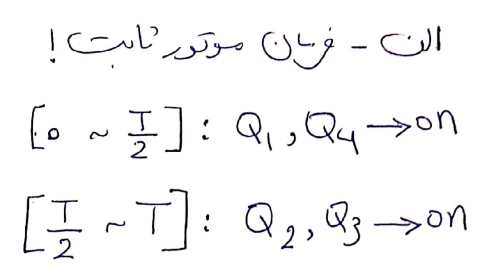 الف - فرمان موتور ثابت !
[0 ~ T/2] : Q1 , Q4 → on
[T/2 ~ T] : Q2 , Q3 → on